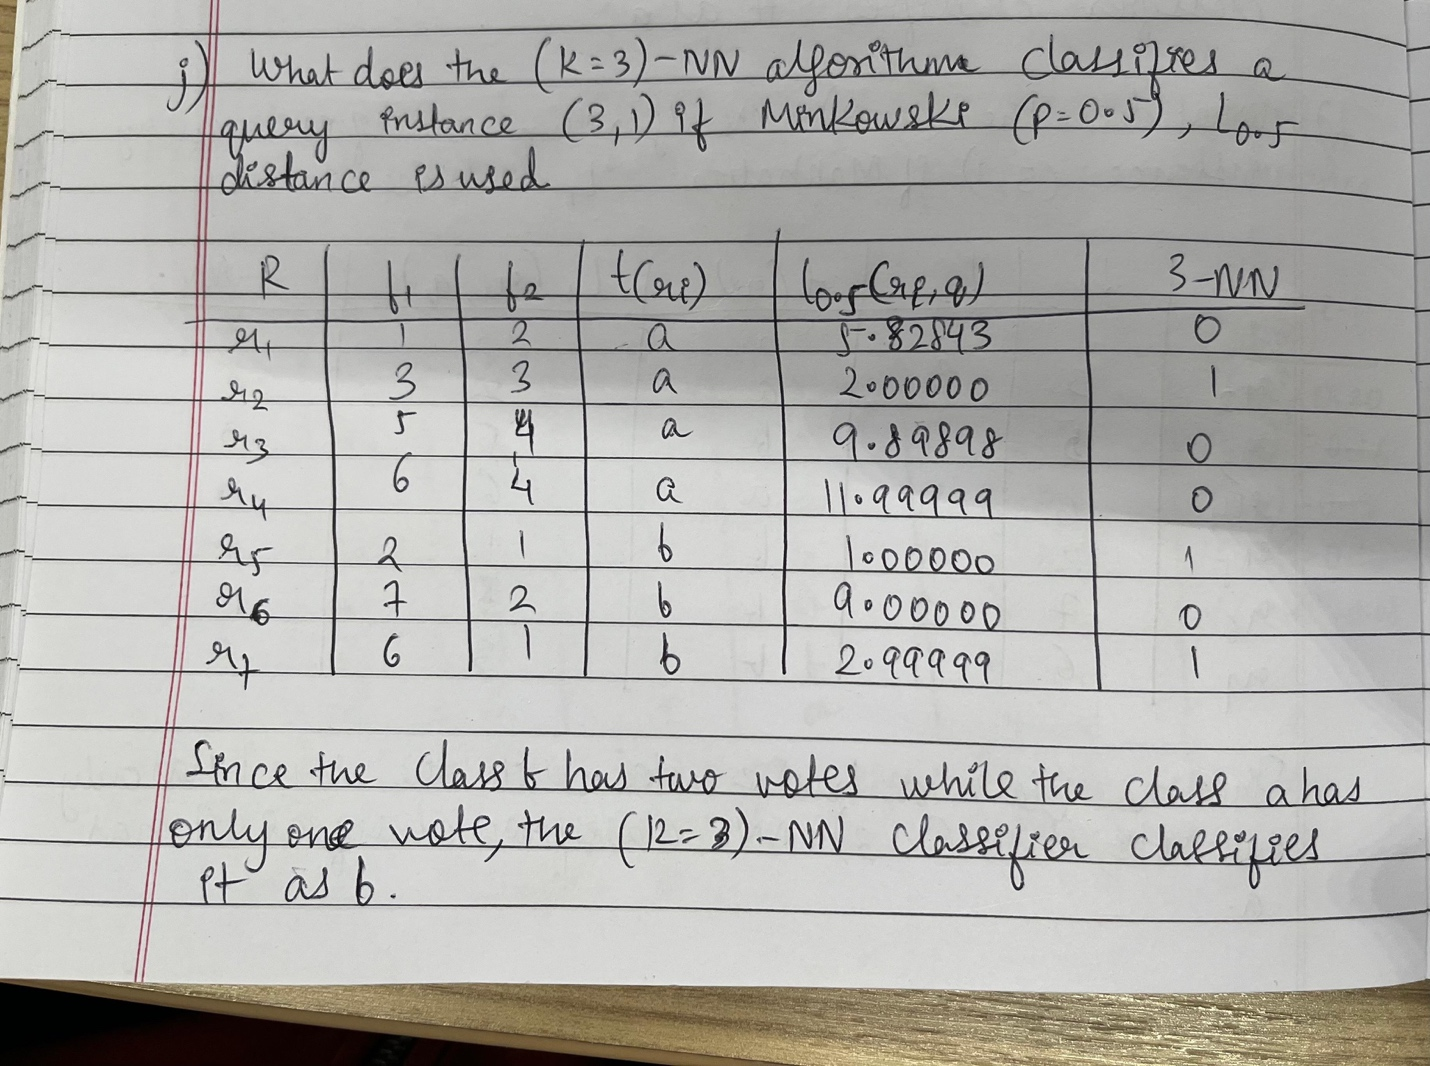 j) What does the (K=3)-NN algorithm classifies a
query instance (3,1) if Minkowski (p=0.5), L0.5
distance is used
R f1 f2 t(ri) L0.5(ri,q) 3-NN
r1 1 2 a 5.82843 0
r2 3 3 a 2.00000 1
r3 5 4 a 9.89898 0
r4 6 4 a 11.99999 0
r5 2 1 b 1.00000 1
r6 7 2 b 9.00000 0
r7 6 1 b 2.99999 1
Since the class b has two votes while the class a has
only one vote, the (k=3)-NN classifier classifies
it as b.